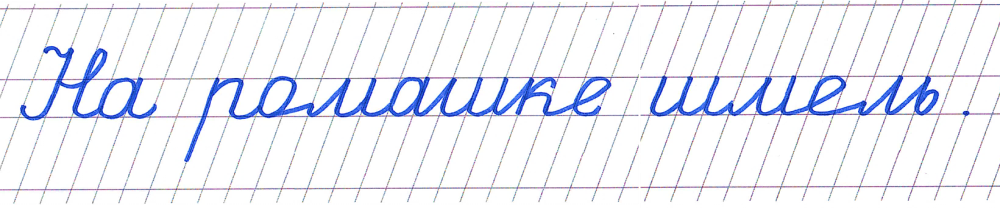 На ромашке шмель.